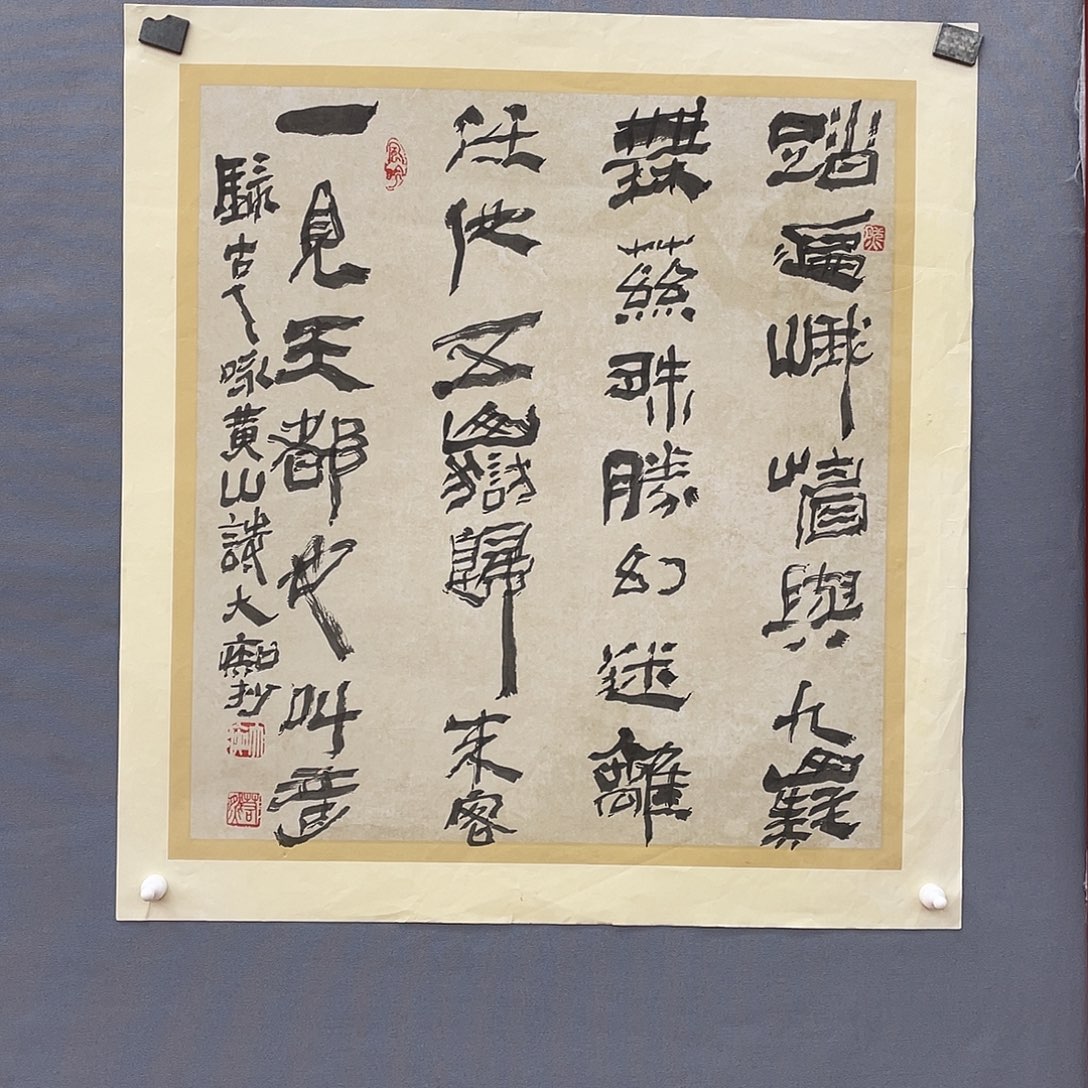 踏遍峨嵋與九嶷
無茲殊勝幻迷離
任他五嶽歸来客
一見天都也叫奇
錄古人咏黃山詩大癡抄